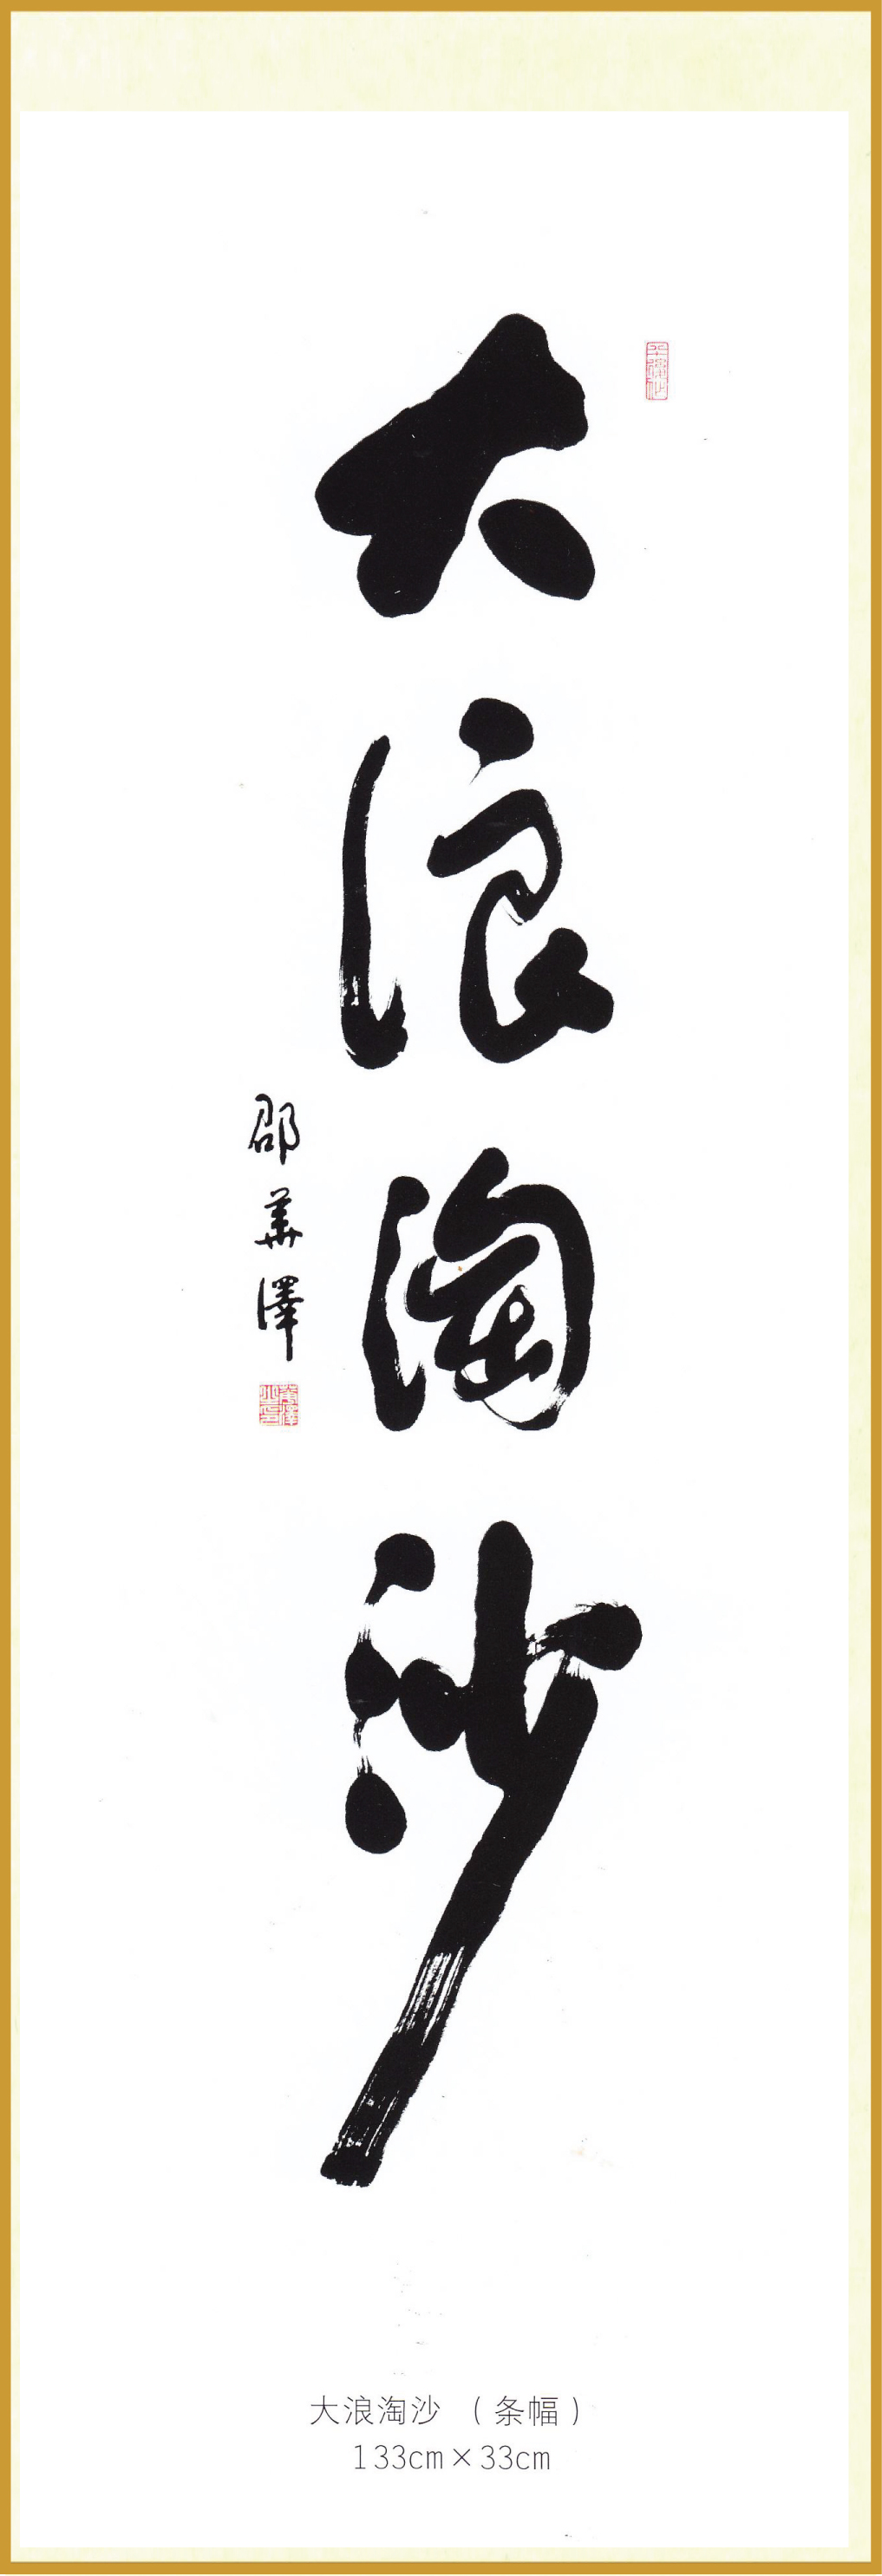 大浪淘沙
邵華澤
華澤之印
大浪淘沙 （条幅）
133cm×33cm